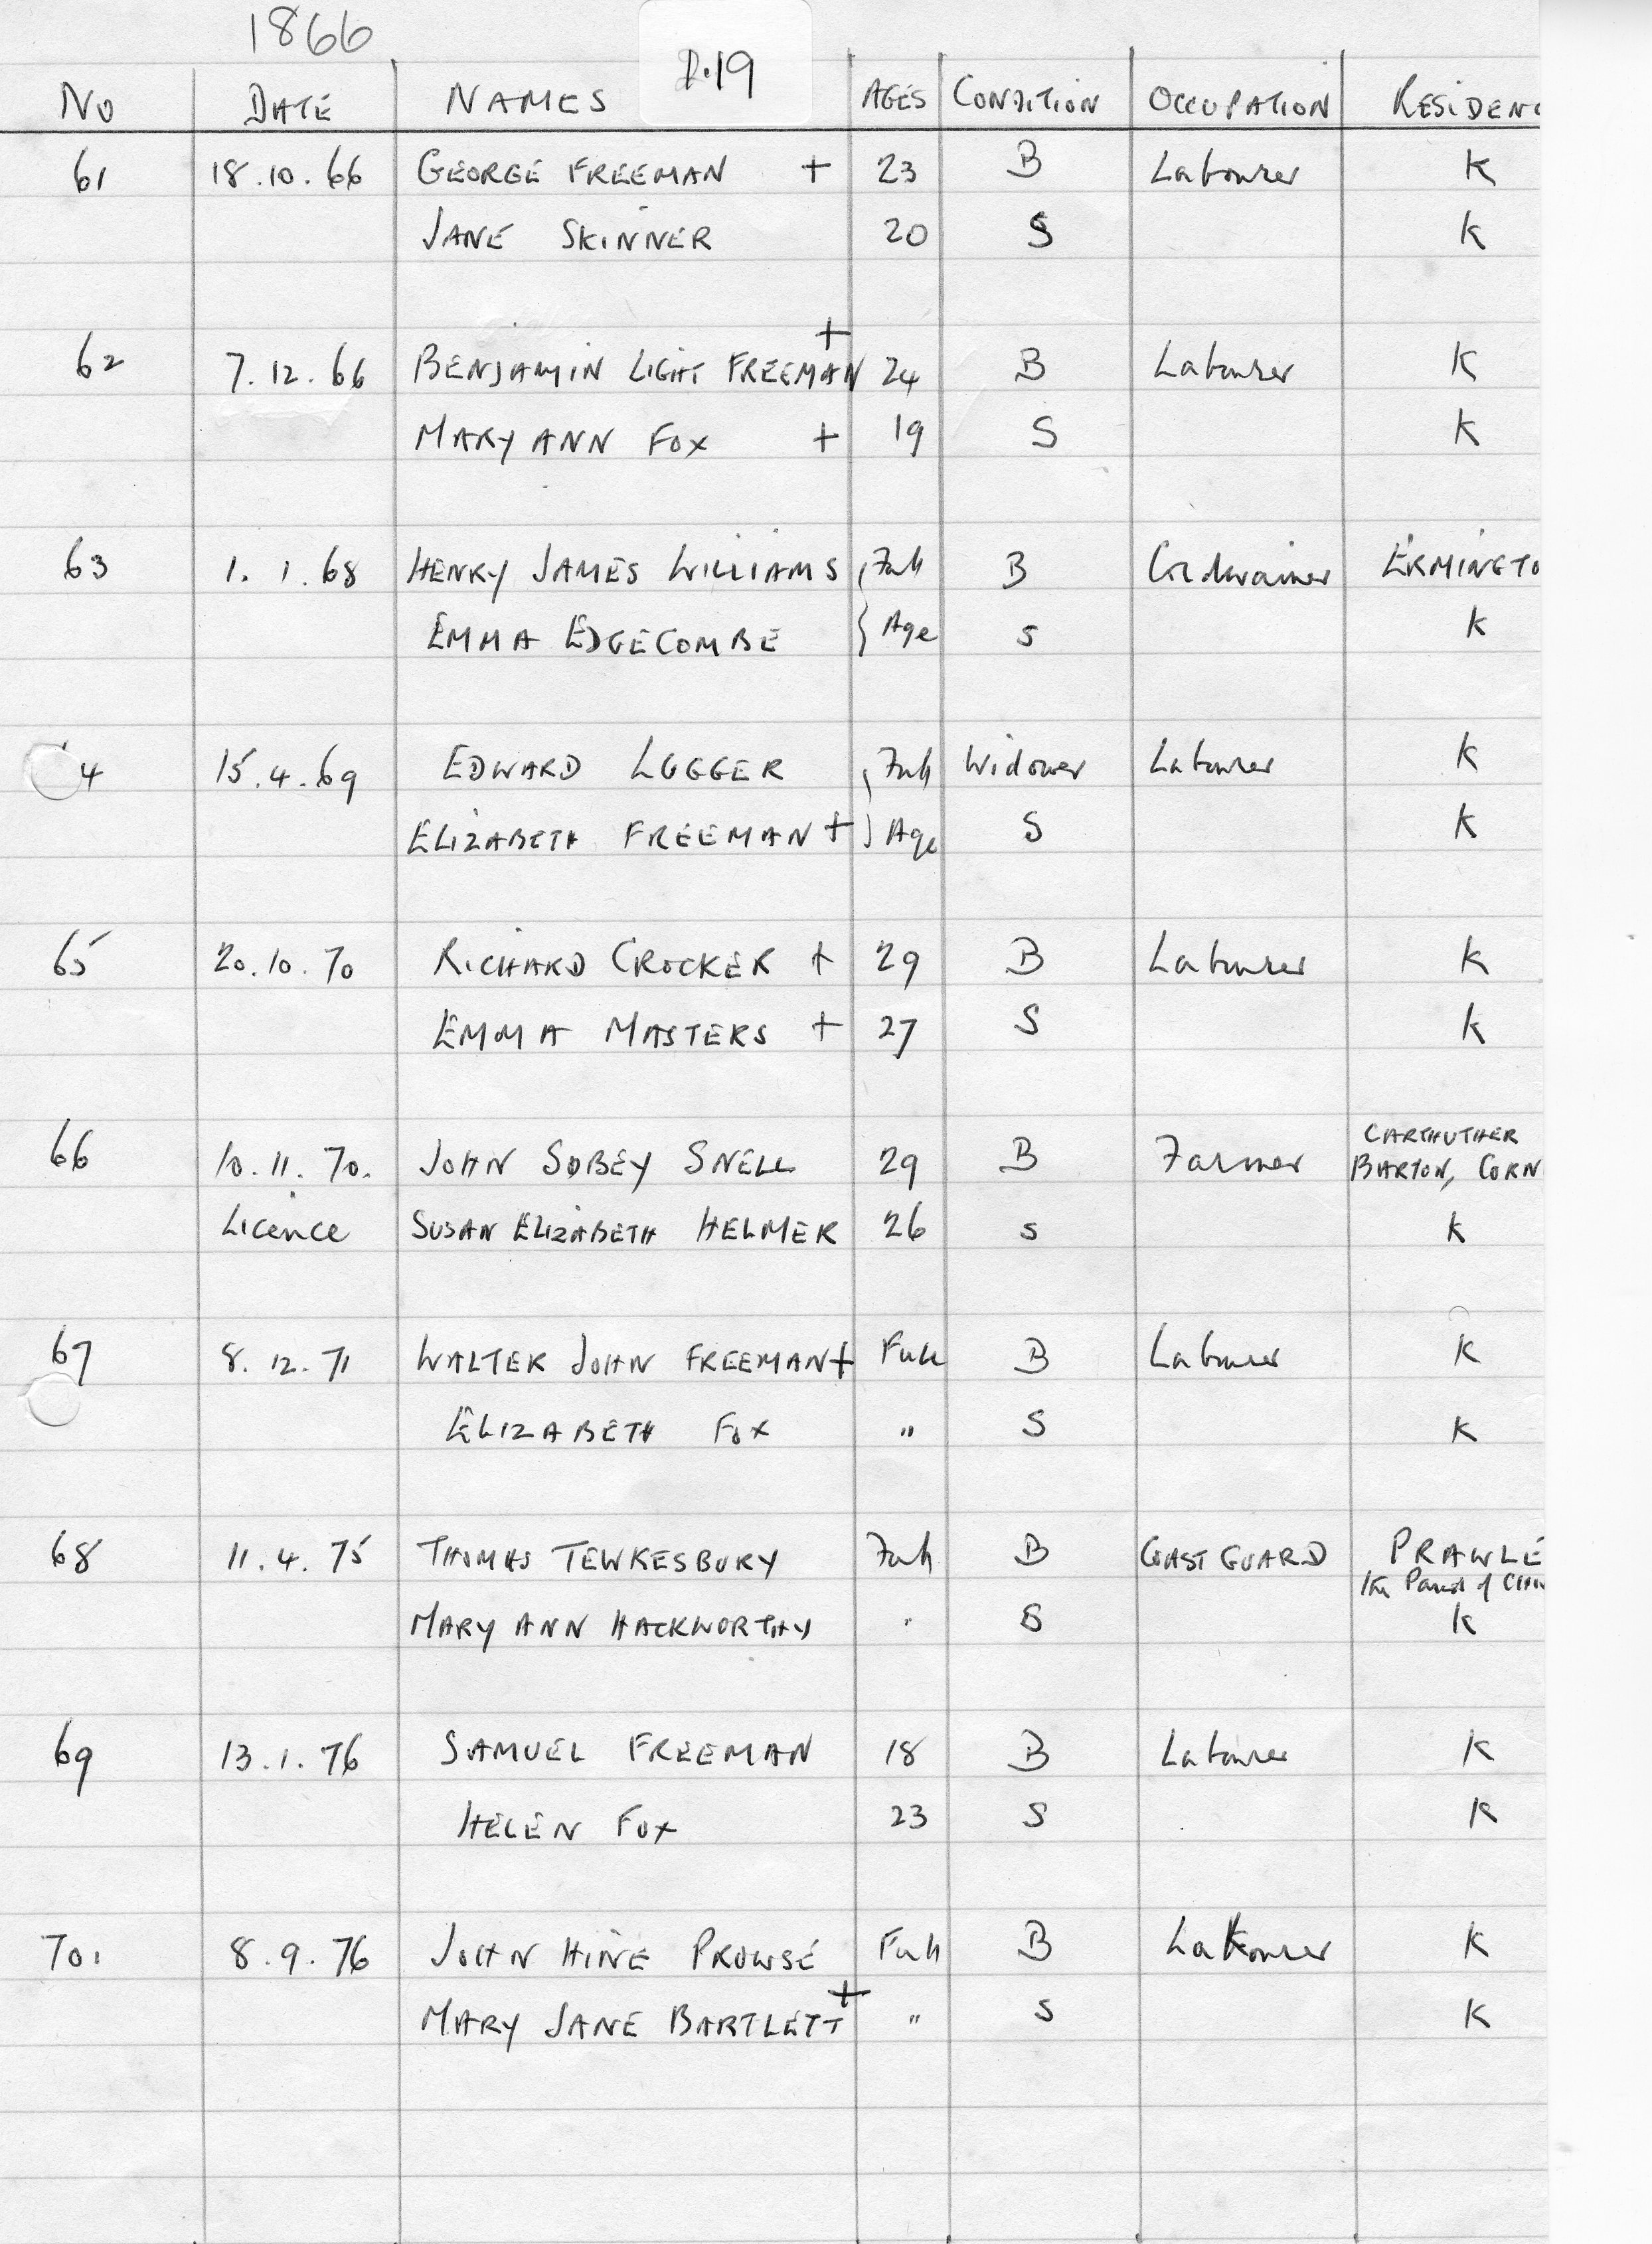 1866
P.19
NO DATE NAMES AGES CONDITION OCCUPATION RESIDENC
61 18.10.66 GEORGE FREEMAN + 23 B Labourer K
JANE SKINNER 20 S K
62 7.12.66 BENJAMIN LIGHT FREEMAN + 24 B Labourer K
MARY ANN FOX + 19 S K
63 1.1.68 HENRY JAMES WILLIAMS Full B Cordwainer ERMINGTO
EMMA EDGECOMBE Age S K
4 15.4.69 EDWARD LUGGER Full Widower Labourer K
ELIZABETH FREEMAN + Age S K
65 20.10.70 RICHARD CROCKER + 29 B Labourer K
EMMA MASTERS + 27 S K
66 10.11.70. JOHN SOBEY SNELL 29 B Farmer CARTHUTHER
BARTON, CORN
Licence SUSAN ELIZABETH HELMER 26 S K
67 8.12.71 WALTER JOHN FREEMAN + Full B Labourer K
ELIZABETH FOX " S K
68 11.4.75 THOMAS TEWKESBURY Full B COAST GUARD PRAWLE
Parish of
MARY ANN HACKWORTHY " S K
69 13.1.76 SAMUEL FREEMAN 18 B Labourer K
HELEN FOX 23 S K
70. 8.9.76 JOHN HINE PROWSE Full B Labourer K
MARY JANE BARTLETT + " S K